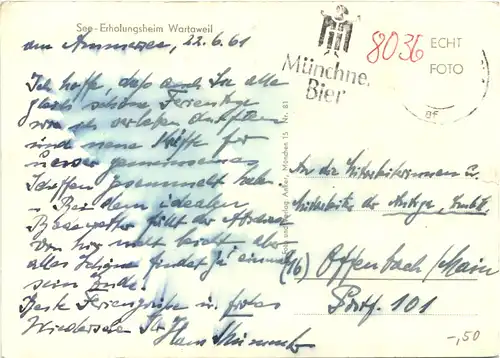 See-Erholungsheim Wartaweil
am Ammersee, 22.6.61
Ich hoffe, daß auch Sie alle
gleich schöne Ferientage
wie ich verleben durften
und neue Kräfte für
unser gemeinsames
Schaffen gesammelt haben.
- Bei dem idealen
Badewetter fällt der Abschied
von hier nicht leicht, aber
alles Schöne findet ja einmal
sein Ende.
Beste Feriengrüße u. frohes
Wiedersehen Ihr Hans
Münchne.
Bier
8036
ECHT
FOTO
Foto und Verlag Anker, München 15 Nr. 81
An die Mitarbeiterinnen u.
Mitarbeiter der
(16) Offenbach/Main
Postf. 101
-,50